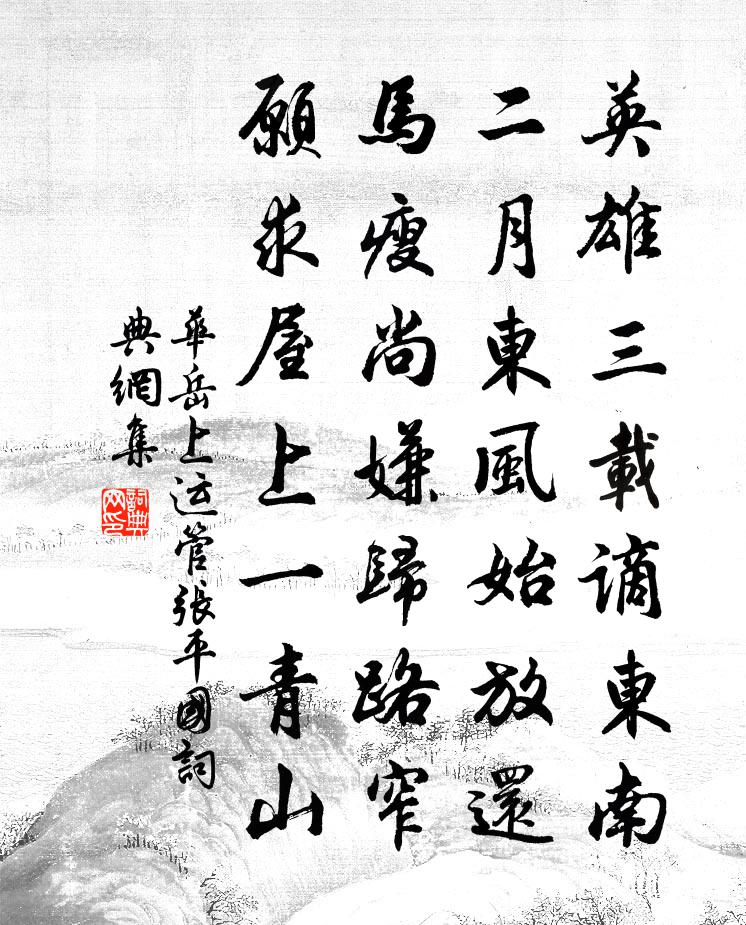 英雄三載謫東南
二月東風始放還
馬瘦尚嫌歸路窄
願求屋上一青山
華岳上运管張平國詞
典網集
詞典网印